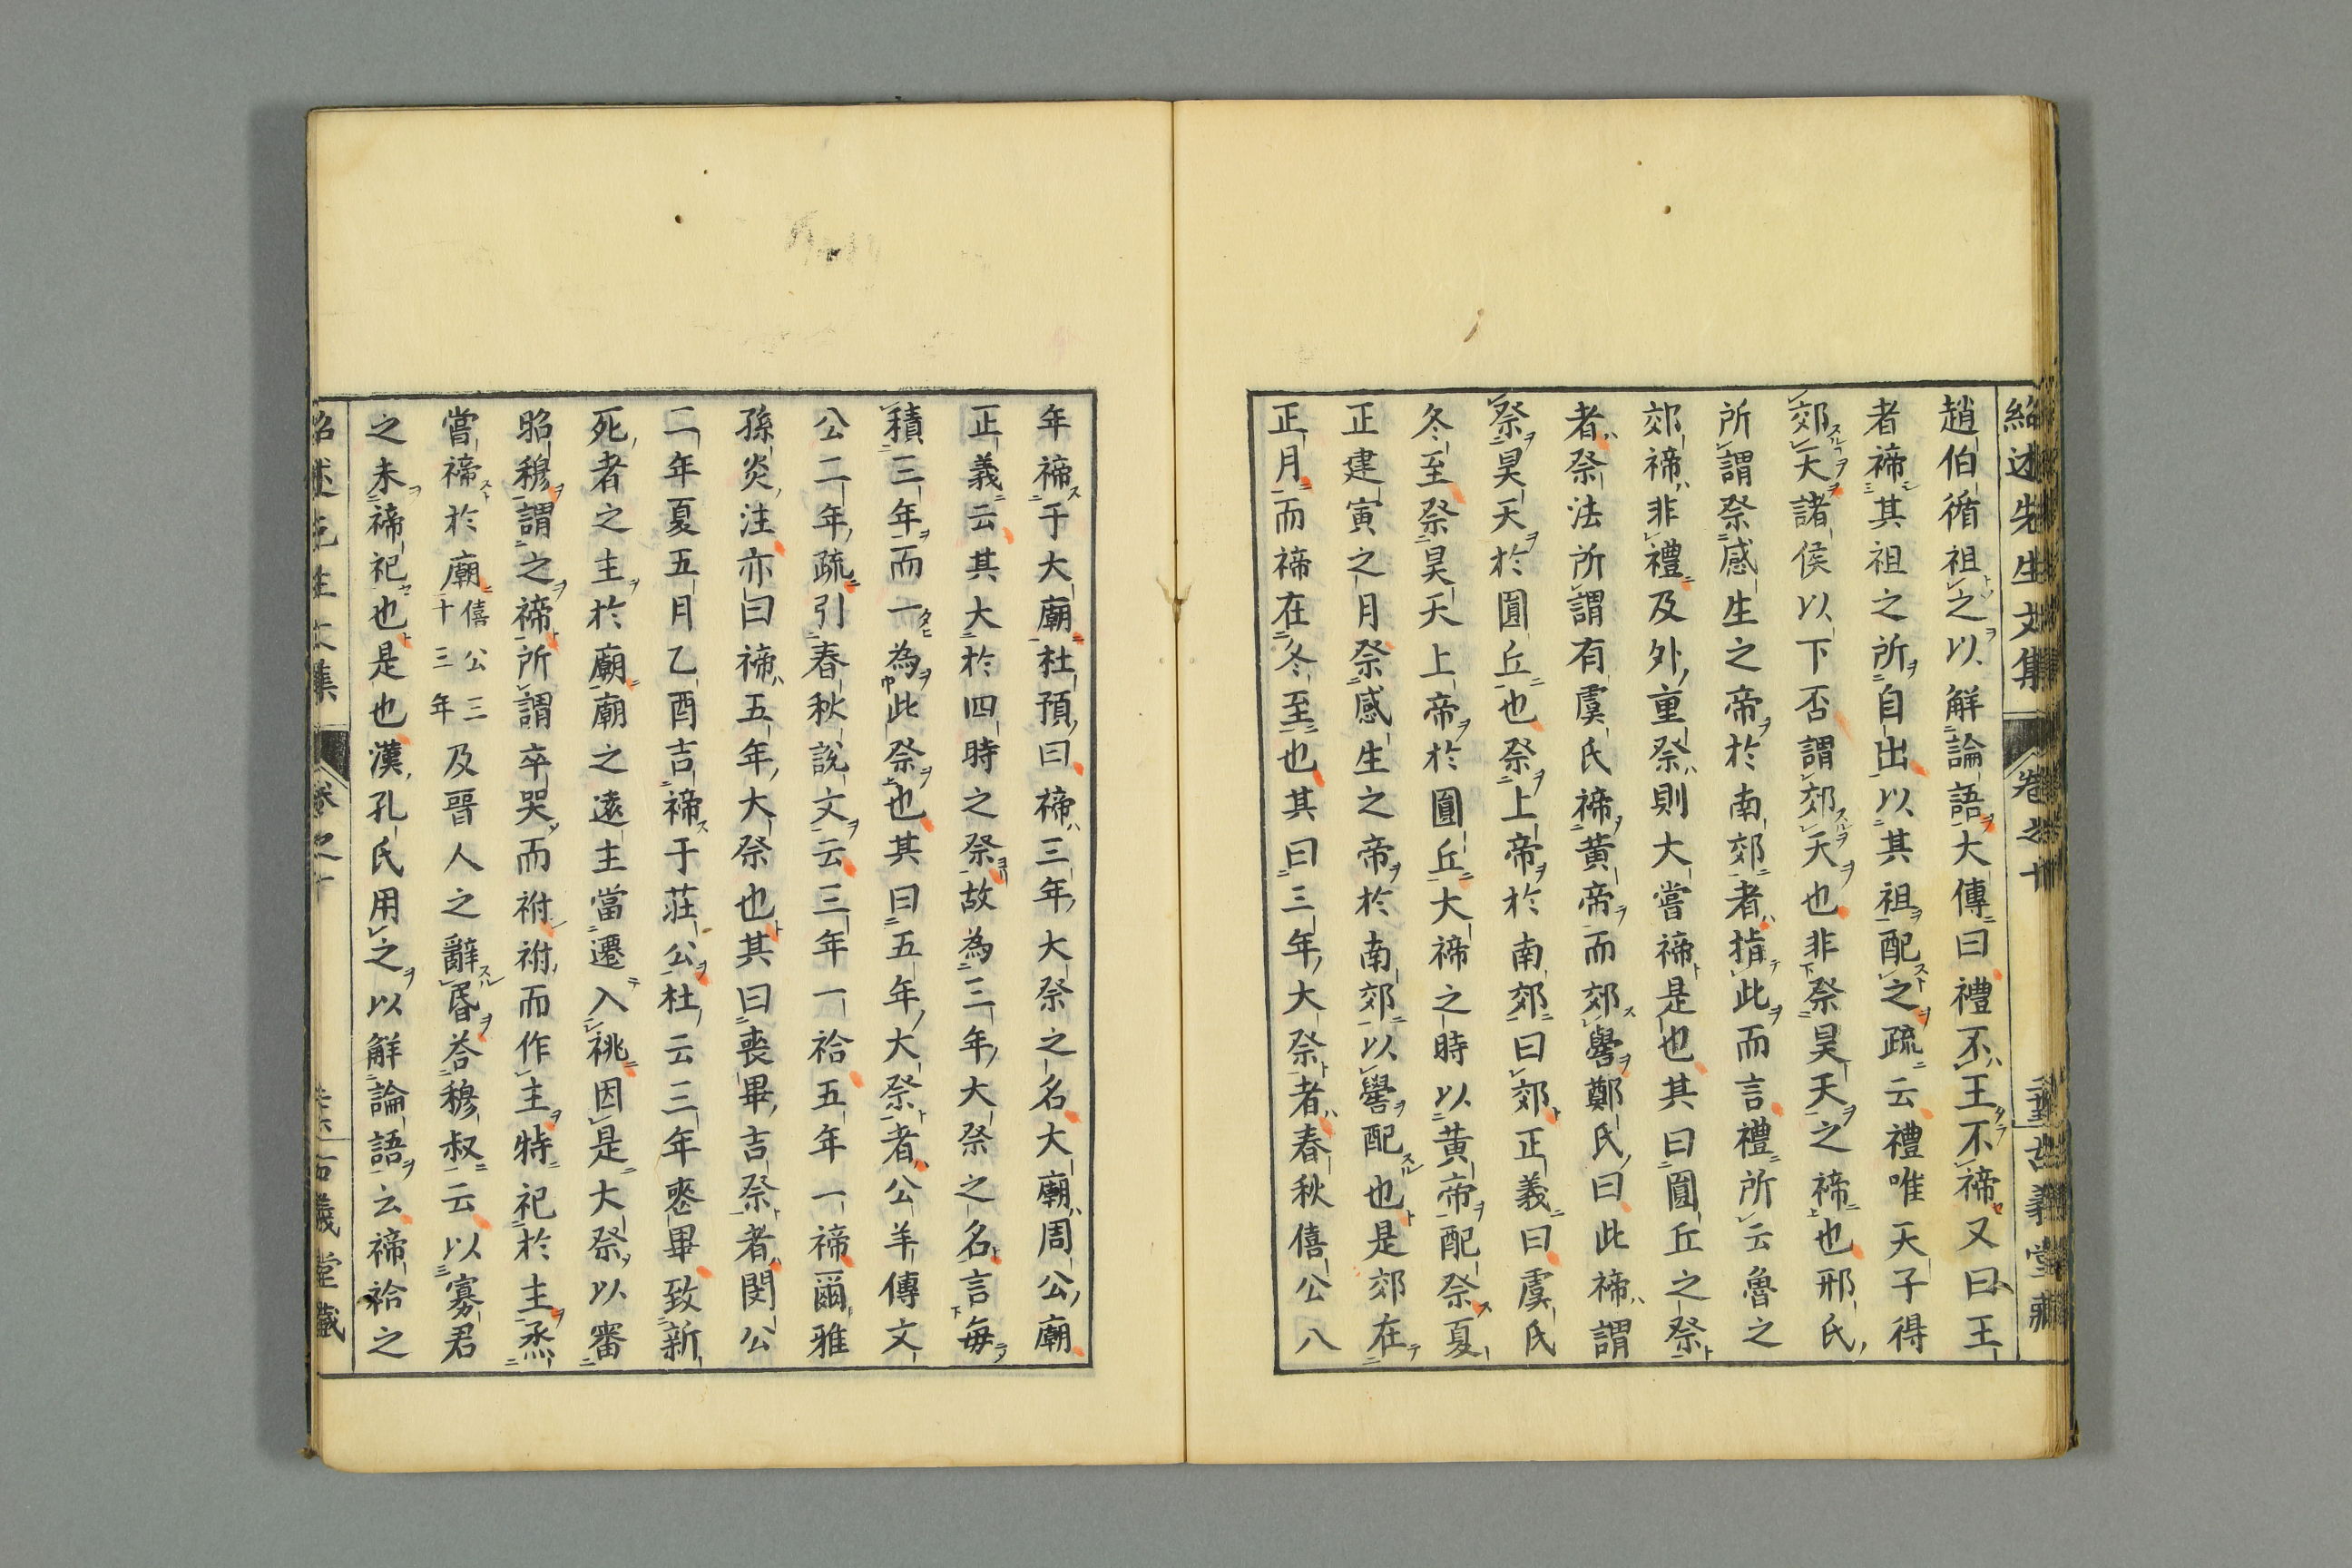 紹述先生文集 卷之十 古義堂藏
趙伯循祖之以解論語大傳曰禮不王不禘又曰王
者禘其祖之所自出以其祖配之疏云禮唯天子得
郊天諸侯以下否謂郊天也非祭昊天之禘也邢氏
所謂祭感生之帝於南郊者指此而言禮所云魯之
郊禘非禮及外重祭則大嘗禘是也其曰圓丘之祭
者祭法所謂有虞氏禘黃帝而郊嚳鄭氏曰此禘謂
祭昊天於圓丘也祭上帝於南郊曰郊正義曰虞氏
冬至祭昊天上帝於圓丘大禘之時以黃帝配祭夏
正建寅之月祭感生之帝於南郊以嚳配也是郊在
正月而禘在冬至也其曰三年大祭者春秋僖公八
年禘于大廟杜預曰禘三年大祭之名大廟周公廟
正義云其大於四時之祭故為三年大祭之名言每
積三年而一為此祭也其曰五年大祭者公羊傳文
公二年疏引春秋說文云三年一祫五年一禘爾雅
孫炎注亦曰禘五年大祭也其曰喪畢吉祭者閔公
二年夏五月乙酉吉禘于莊公杜云三年喪畢致新
死者之主於廟廟之遠主當遷入祧因是大祭以審
昭穆謂之禘所謂卒哭而祔祔而作主特祀於主烝
嘗禘於廟僖公三十三年及晉人之辭昬荅穆叔云以寡君
之未禘祀也是也漢孔氏用之以解論語云禘祫之
紹述先生文集 卷之十 古義堂藏